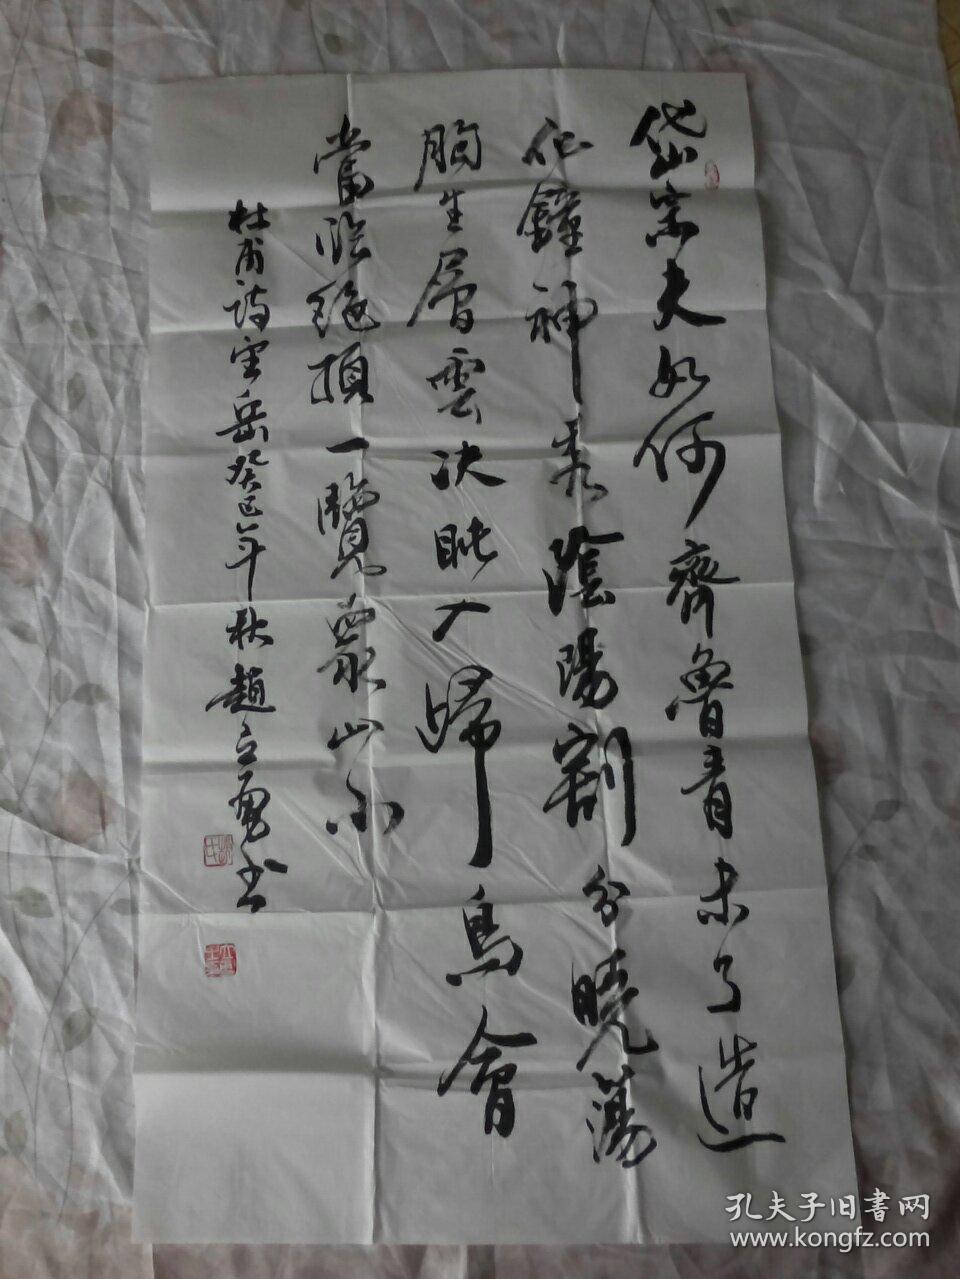 岱宗夫如何齊魯青未了造
化鐘神秀陰陽割分曉蕩
胸生層雲决眦入歸鳥會
當臨絶頂一覽衆山小
杜甫詩望岳癸巳年秋趙立勇书
孔夫子旧书网
www.kongfz.com